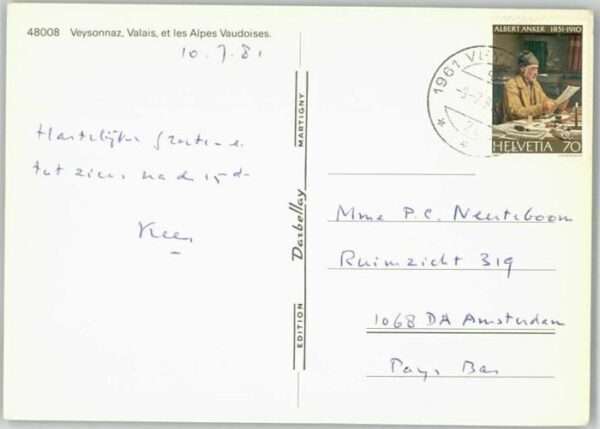 48008 Veysonnaz, Valais, et les Alpes Vaudoises.
10.7.81
Hartelijke groeten e
tot ziens na de 15de
Kees
EDITION Darbellay MARTIGNY
ALBERT ANKER 1831-1910
HELVETIA 70
1961 VEY
Mme P.C. Neuteboom
Ruimzicht 319
1068 DA Amsterdam
Pays Bas